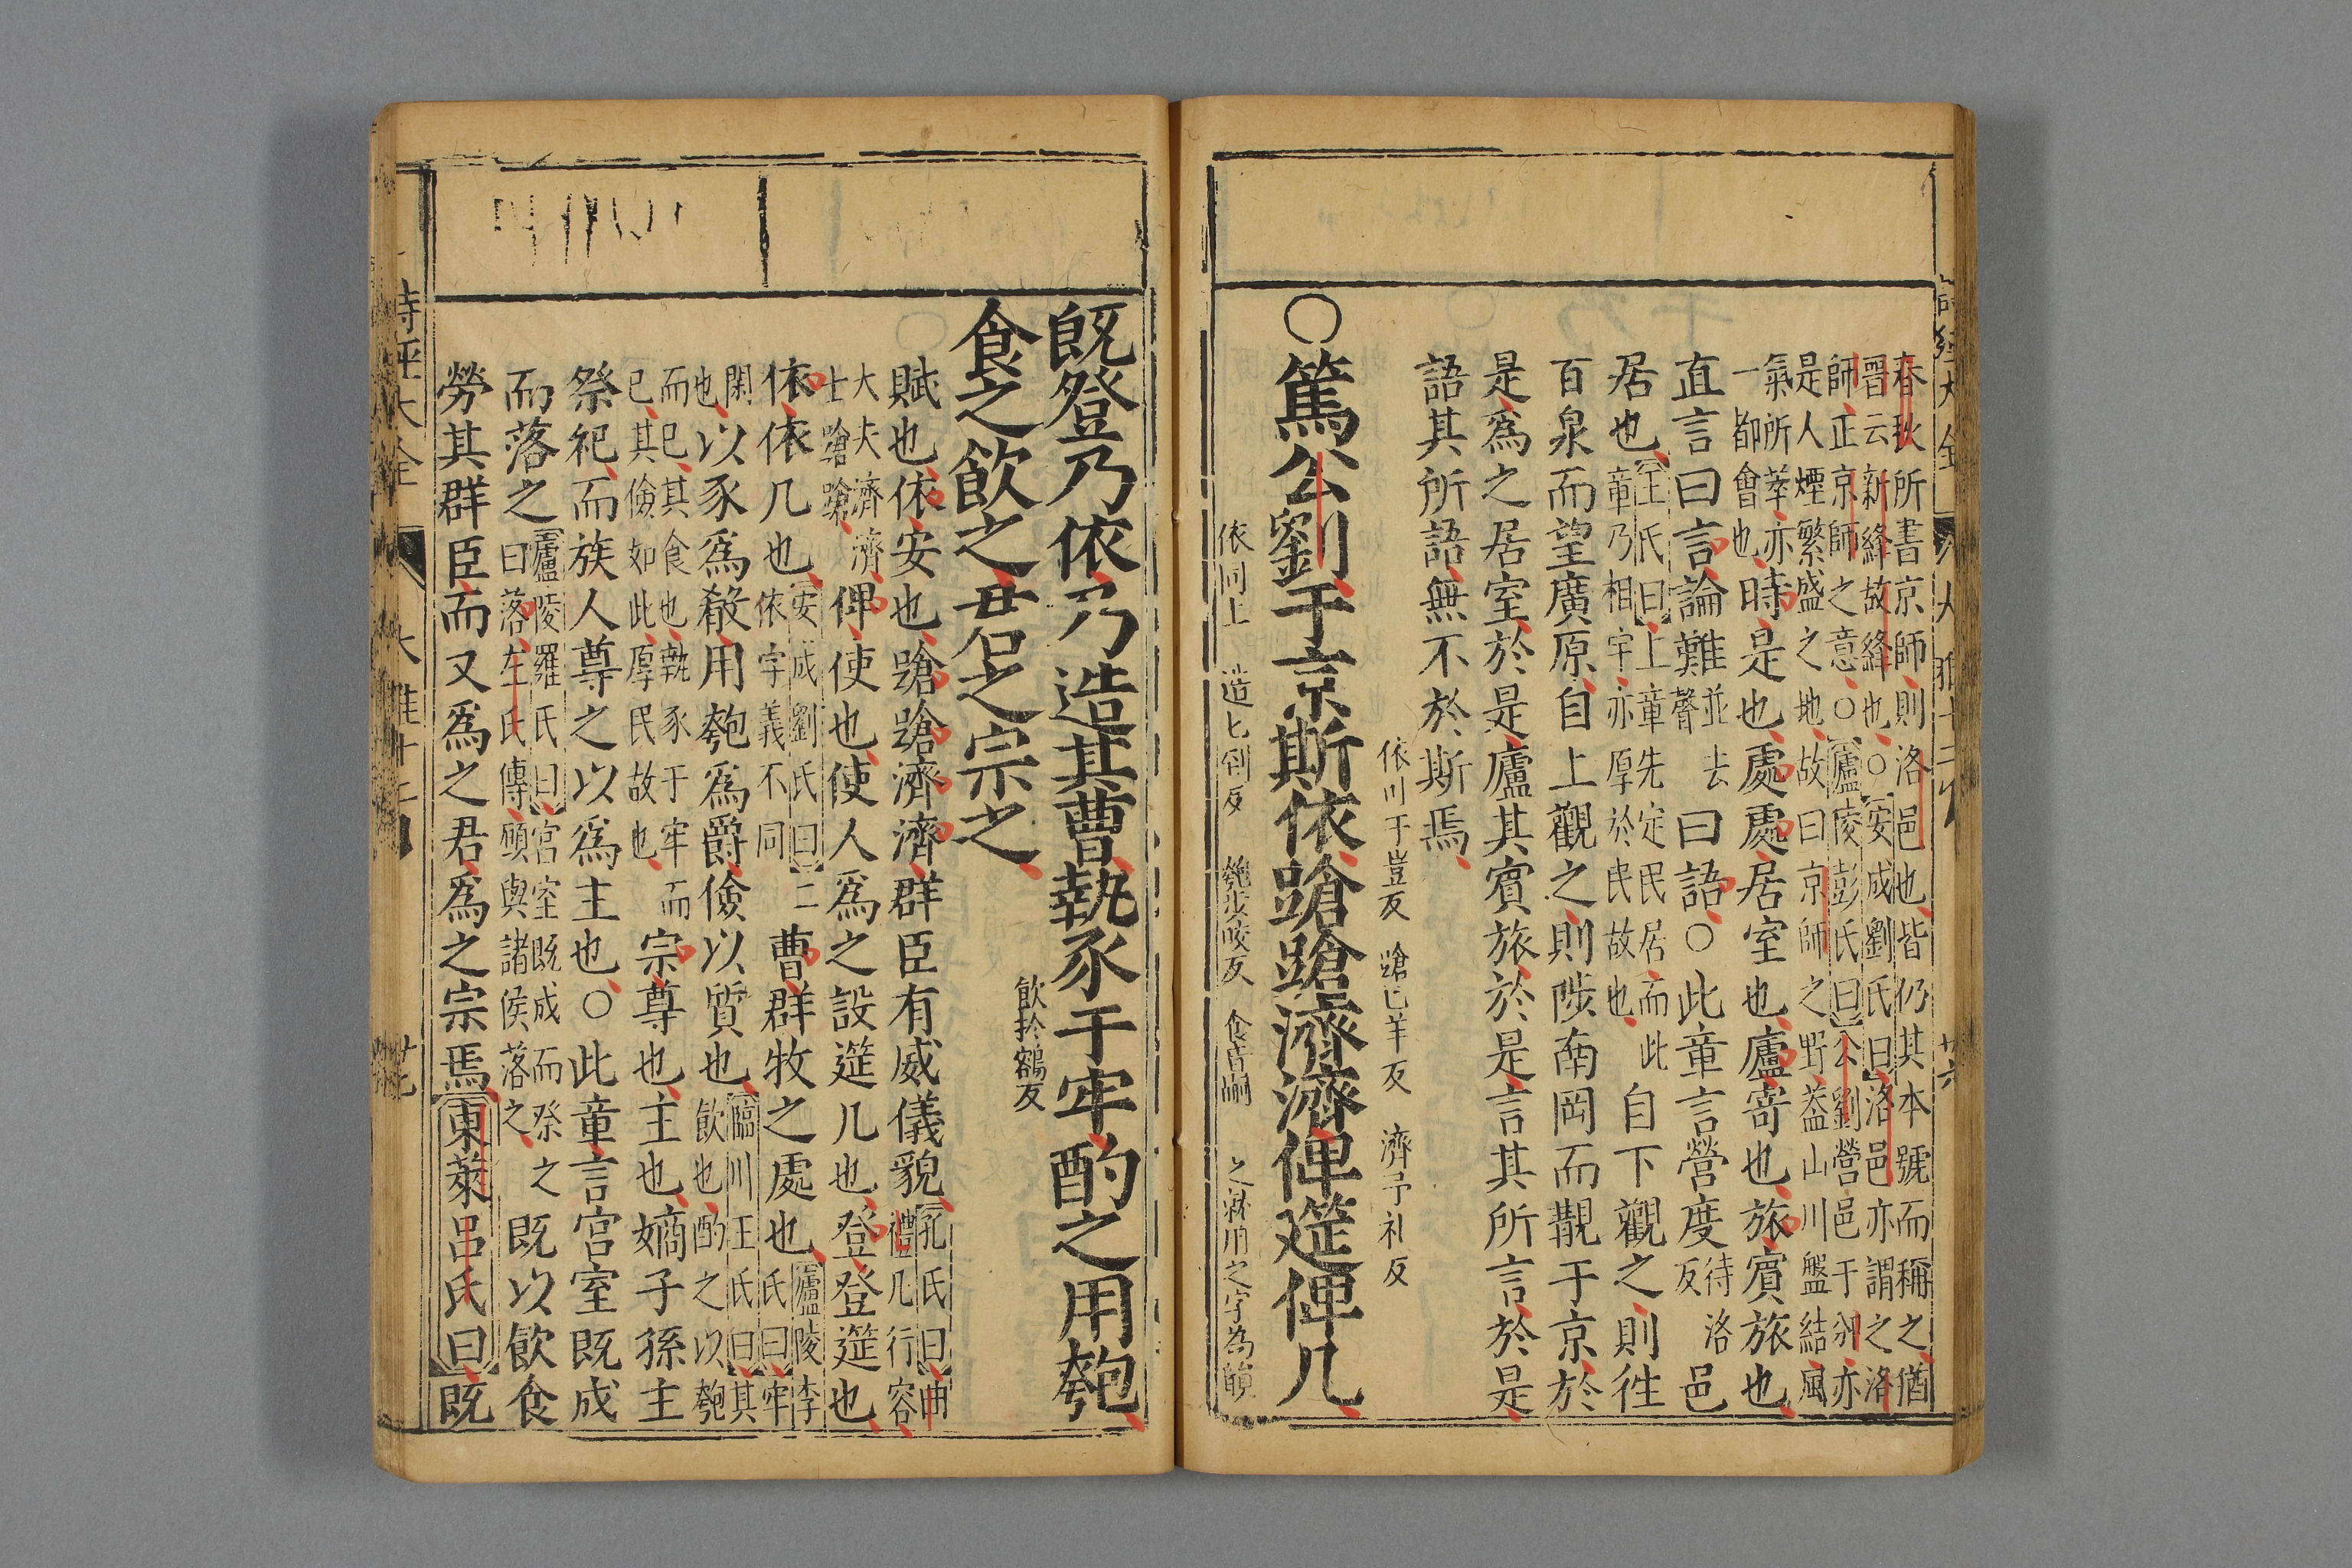 春秋所書京師則洛邑也皆仍其本號而稱之猶
晋云新絳故絳也○安成劉氏曰洛邑亦謂之洛
師正京師之意○廬陵彭氏曰公劉營邑于豳亦
是人煙繁盛之地故曰京師之野盖山川盤結風
氣所萃亦一都會也時是也處處居室也廬寄也旅賓旅也
直言曰言論難並去聲曰語○此章言營度待洛反邑
居也王氏曰上章先定民居而此章乃相宇亦厚於民故也自下觀之則徃
百泉而望廣原自上觀之則陟南岡而覯于京於
是爲之居室於是廬其賓旅於是言其所言於是
語其所語無不於斯焉
依川于豈反 蹌七羊反 濟子礼反
○篤公劉于京斯依蹌蹌濟濟俾筵俾几
依同上 造七到反 匏步交反 食音嗣
既登乃依乃造其曹執豕于牢酌之用匏
飲於鴆反
食之飲之君之宗之
賦也依安也蹌蹌濟濟群臣有威儀貌孔氏曰曲禮几行容
大夫濟濟士蹌蹌俾使也使人爲之設筵几也登登筵也
依依几也安成劉氏曰二依字義不同曹群牧之處也廬陵李氏曰牢
閑也以豕爲殽用匏爲爵儉以質也臨川王氏曰其飲也酌之以匏
而已其食也執豕于牢而已其儉如此厚民故也宗尊也主也嫡子孫主
祭祀而族人尊之以爲主也○此章言宮室既成
而落之廬陵羅氏曰宮室既成而祭之曰落左氏傳願與諸侯落之既以飲食
勞其群臣而又爲之君爲之宗焉東萊呂氏曰既